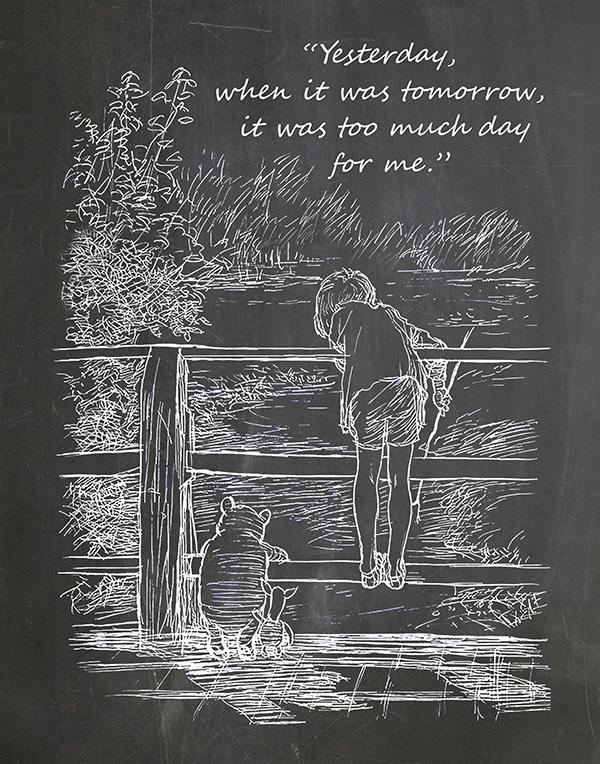 “Yesterday,
when it was tomorrow,
it was too much day
for me.”